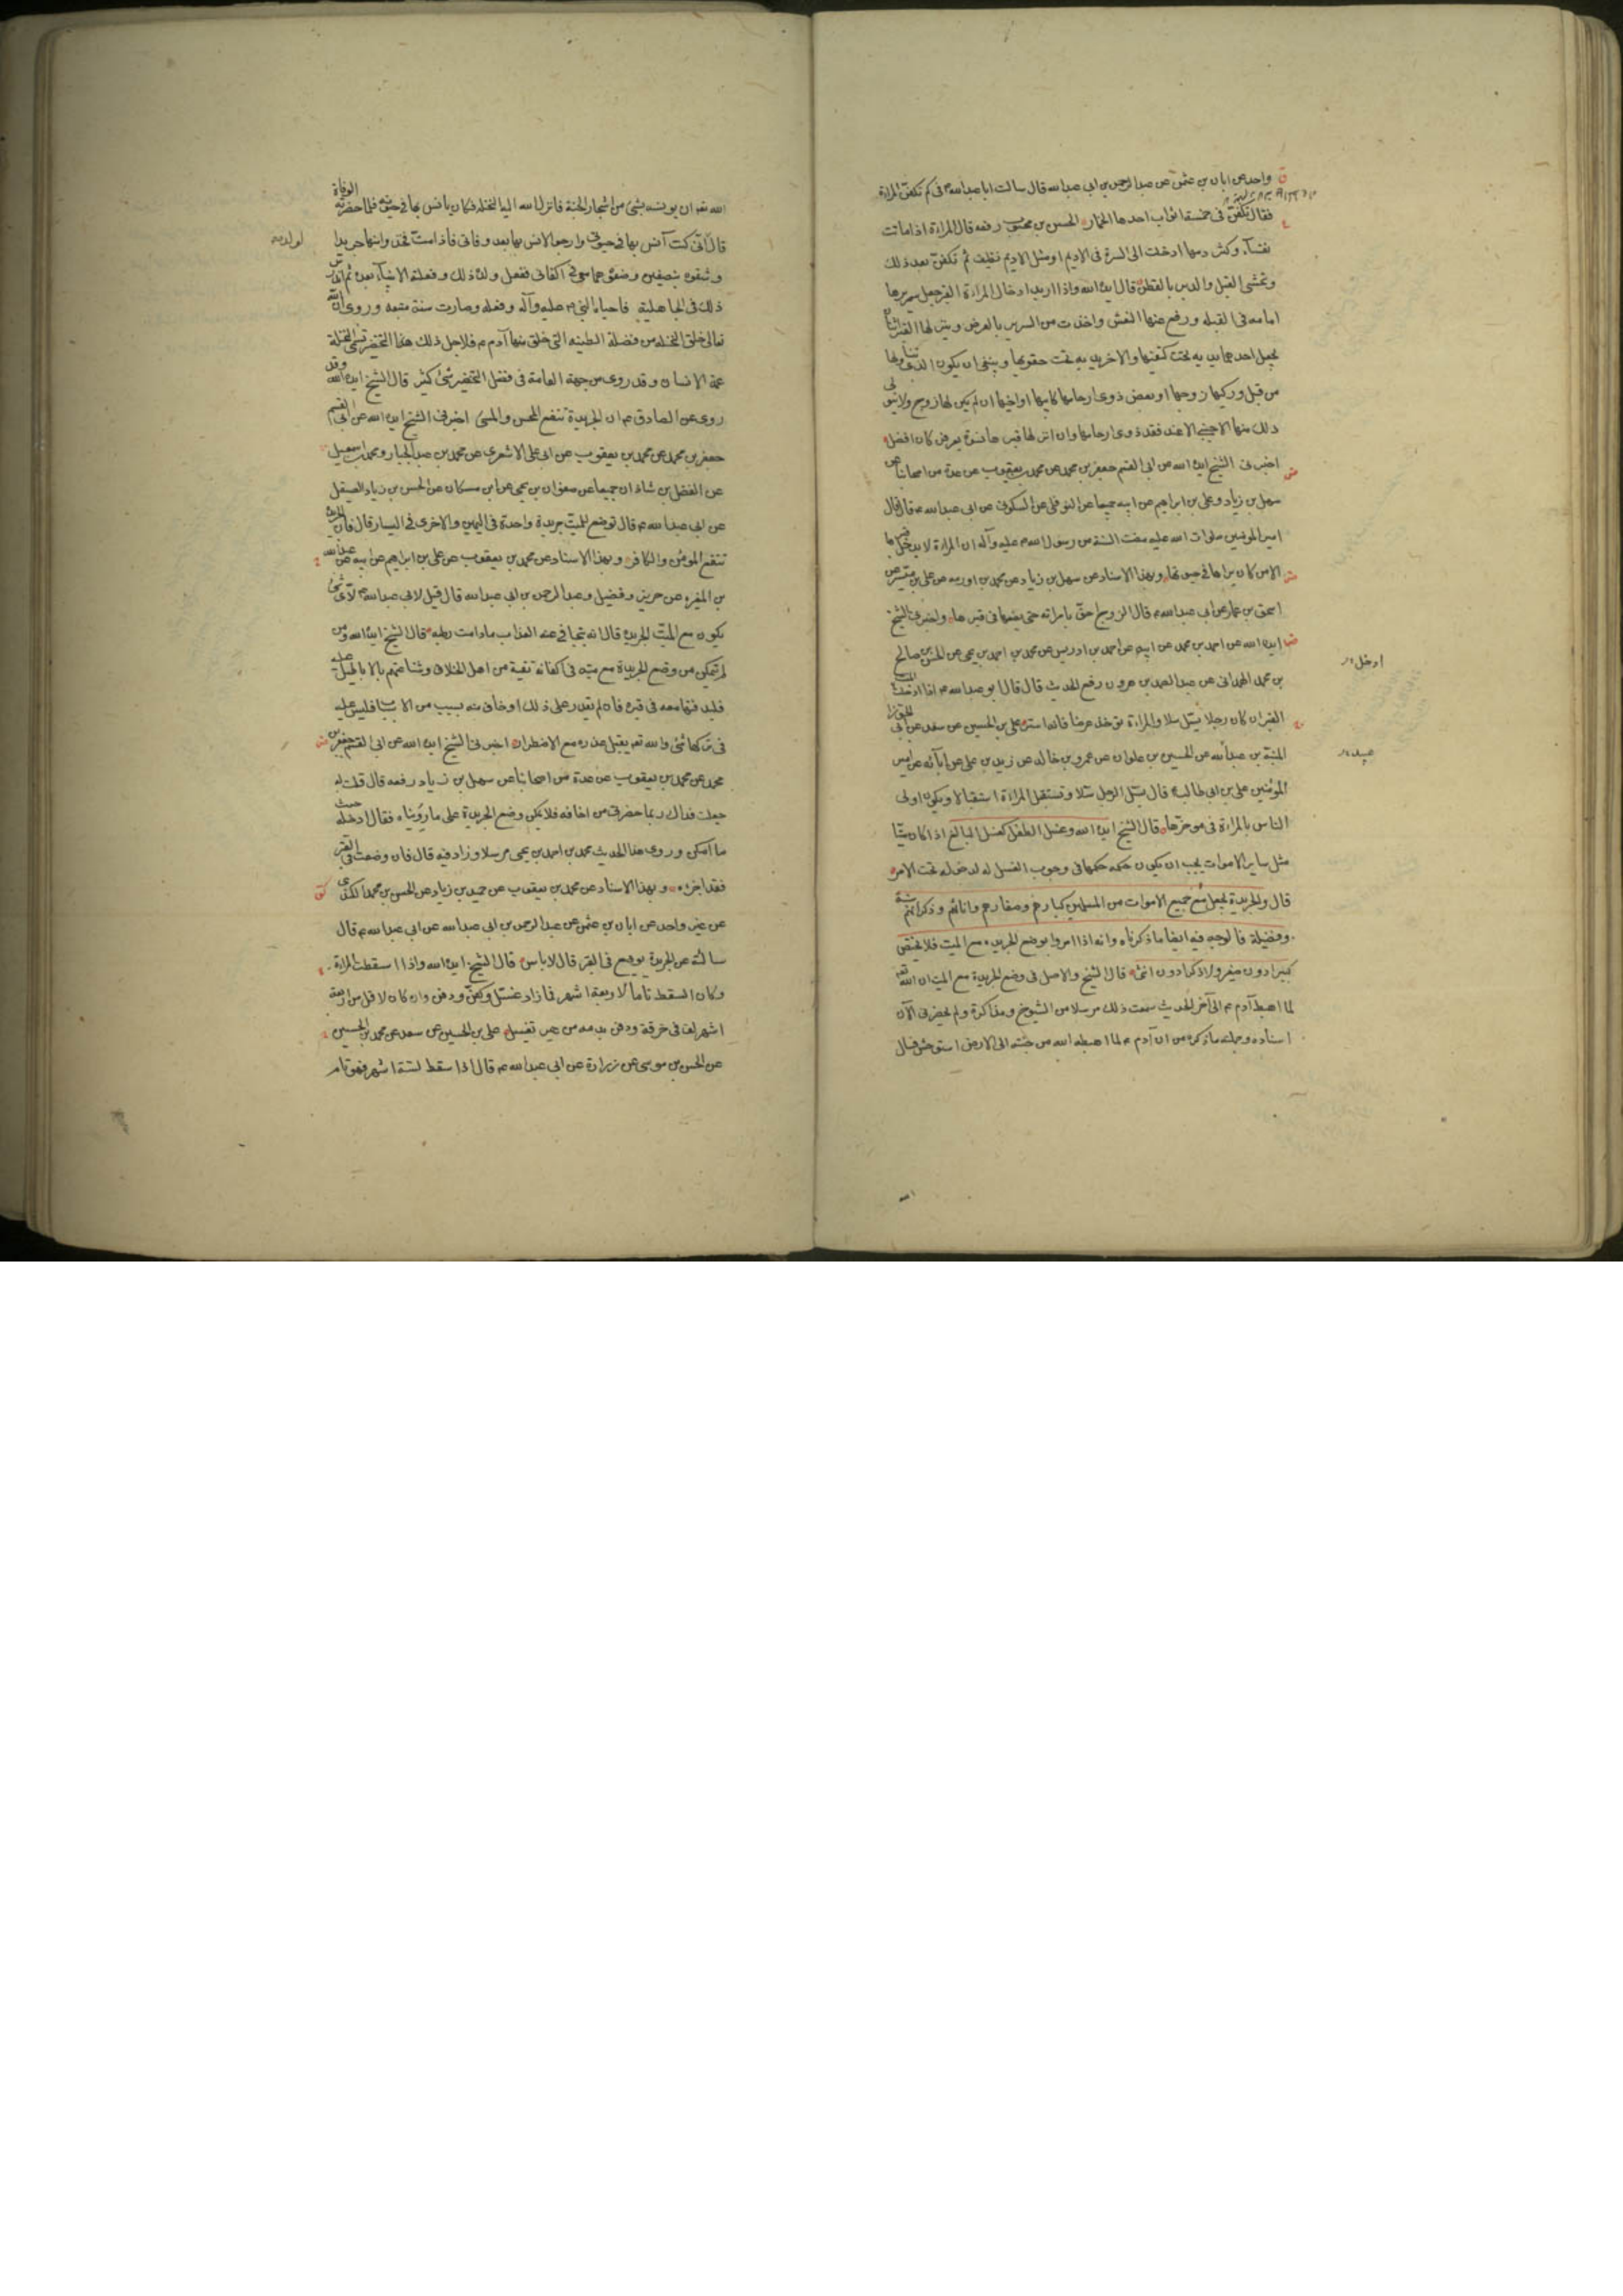 واحد عن ابان بن عثمن عن عبد الرحمن بن ابى عبد الله قال سالت ابا عبد الله فى كم تكفن المراة
فقال تكفن فى خمسة اثواب احدها الخمار الحسن بن محبوب رفعه قال المراة اذا ماتت
نفساء وكثر دمها ادخلت الى السرة فى الاديم او مثل الاديم نظيف ثم تكفن بعد ذلك
ويحشى القبل والدبر بالقطن قال ايده الله واذا اريد ادخال المراة القبر جعل سريرها
امامه فى القبلة ورفع عنها النعش واخذت من السرير بالعرض وينزلها القبر اثنان
يجعل احدهما يديه تحت كتفيها والاخر يديه تحت حقويها وينبغى ان يكون الذى يتناولها
من قبل وركيها زوجها او بعض ذوى ارحامها كابنها او اخيها ان لم يكن لها زوج ولا يتولى
ذلك منها الاجنبى الا عند فقد ذوى ارحامها وان انزلها قبرها نسوة يعرفن كان افضل
اخبرنى الشيخ ايده الله عن ابى القسم جعفر بن محمد عن محمد بن يعقوب عن عدة من اصحابنا عن
سهل بن زياد وعلى بن ابراهيم عن ابيه جميعا عن النوفلى عن السكونى عن ابى عبد الله ع قال قال
امير المؤمنين صلوات الله عليه مضت السنة من رسول الله صلى عليه وآله ان المراة لا يدخل قبرها
الا من كان يراها فى حيوتها وبهذا الاسناد عن سهل بن زياد عن محمد بن اورمه عن على بن ميسر عن
اسحق بن عمار عن ابى عبد الله ع قال الزوج احق بامراته حتى يضعها فى قبرها واخبرنى الشيخ
ايده الله عن احمد بن محمد عن ابيه عن احمد بن ادريس عن محمد بن احمد بن يحيى عن الحسن بن صالح
بن محمد الهمدانى عن عبد الصمد بن هرون رفع الحديث قال قال ابو عبد الله ع اذا ادخلت الميت
ادخل
القبر ان كان رجلا يسل سلا والمراة توخذ عرضا فانه استر على بن الحسين عن سعد عن ابى الجوزا
المنبه بن عبد الله عن الحسين بن علوان عن عمرو بن خالد عن زيد بن على عن آبائه عن امير
عبيد
المؤمنين على بن ابى طالب قال يسل الرجل سلا وتستقبل المراة استقبالا ويكون اولى
الناس بالمراة فى موخرها قال الشيخ ايده الله وغسل الطفل كغسل البالغ اذا كان ميتا
مثل ساير الاموات يجب ان يكون حكمه حكمها فى وجوب الغسل له لدخوله تحت الامر
قال والجريدة تجعل مع جميع الاموات من المسلمين كبارهم وصغارهم واناثهم وذكرانهم سنة
وفضيلة فالوجه فيه ايضا ما ذكرناه وانه اذا امروا بوضع الجريده مع الميت فلا يختص
كبيرا دون صغير ولا ذكرا دون انثى قال الشيخ والاصل فى وضع الجريدة مع الميت ان الله تعه
لما اهبط آدم ع الى آخر الحديث سمعت ذلك مرسلا من الشيوخ ومذاكرة ولم يحضرنى الآن
اسناده وجملته ما ذكره من ان آدم ع لما اهبطه الله من جنته الى الارض استوحش فسال
الله تعه ان يونسه بشئ من اشجار الجنة فانزل الله اليه النخله فكان يانس بها فى حيوته فلما حضرته الوفاة
قال انى كنت آنس بها فى حيوتى وارجو الانس بها بعد وفاتى فاذا مت فخذوا منها جريدا
لولده
وشقوه بنصفين وضعوهما معى فى اكفانى ففعل ولده ذلك وفعلته الانبياء بعده ثم اندرس
ذلك فى الجاهلية فاحياه النبى ص عليه وآله وفعله وصارت سنة متبعه وروى ان الله
تعالى خلق النخله من فضلة الطينه التى خلق منها آدم ع فلاجل ذلك تسمى النخلة
عمة الانسان وقد روى من جهة العامة فى فضل التخضير شئ كثير قال الشيخ ايده الله وقد
روى عن الصادق ع ان الجريدة تنفع المحسن والمسئ اخبرنى الشيخ ايده الله عن ابى القسم
جعفر بن محمد عن محمد بن يعقوب عن ابى على الاشعرى عن محمد بن عبد الجبار ومحمد بن اسمعيل
عن الفضل بن شاذان جميعا عن صفوان بن يحيى عن ابن مسكان عن الحسن بن زياد الصيقل
عن ابى عبد الله ع قال توضع للميت جريدة واحدة فى اليمين والاخرى فى اليسار قال قال الجريدة
تنفع المومن والكافر وبهذا الاسناد عن محمد بن يعقوب عن على بن ابراهيم عن ابيه عن عبد الله
بن المغيره عن حريز وفضيل وعبد الرحمن بن ابى عبد الله قال قيل لابى عبد الله ع لاى شئ
يكون مع الميت الجريدة قال انه يتجافى عنه العذاب ما دامت رطبه قال الشيخ ايده الله ومن
لم يتمكن من وضع الجريدة مع ميته فى اكفانه تقية من اهل الخلاف وشناعتهم بالاباطيل عليه
فليدفنها معه فى قبره فان لم يقدر على ذلك او خاف منه بسبب من الاسباب فليس عليه
فى تركها شئ والله تعه يقبل عذره مع الاضطرار اخبرنى الشيخ ايده الله عن ابى القسم جعفر بن
محمد عن محمد بن يعقوب عن عدة من اصحابنا عن سهل بن زياد رفعه قال قلت له
جعلت فداك ربما حضرنى من اخافه فلا يمكن وضع الجريدة على ما رويناه فقال ادخلها حيث
ما امكن وروى هذا الحديث محمد بن احمد بن يحيى مرسلا وزاد فيه قال فان وضعت فى القبر
فقد اجزءه وبهذا الاسناد عن محمد بن يعقوب عن حميد بن زياد عن الحسن بن محمد الكندى
عن غير واحد عن ابان بن عثمن عن عبد الرحمن بن ابى عبد الله عن ابى عبد الله ع قال
سالته عن الجريدة توضع فى القبر قال لا باس قال الشيخ ايده الله واذا اسقطت المراة
وكان السقط تاما لاربعة اشهر فازاد غسل وكفن ودفن وان كان لاقل من اربعة
اشهر لف فى خرقة ودفن بدمه من غير تغسيل على بن الحسين عن سعد عن محمد بن الحسين
عن الحسن بن موسى عن زرارة عن ابى عبد الله ع قال اذا سقط لستة اشهر فهو تام